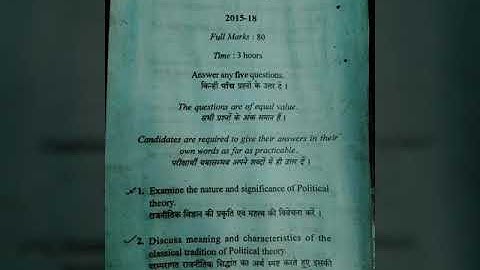 2015-18
Full Marks : 80
Time : 3 hours
Answer any five questions.
किन्हीं पाँच प्रश्नों के उत्तर दें ।
The questions are of equal value.
सभी प्रश्नों के अंक समान हैं ।
Candidates are required to give their answers in their
own words as far as practicable.
परीक्षार्थी यथासम्भव अपने शब्दों में ही उत्तर दें ।
1. Examine the nature and significance of Political
theory.
राजनीतिक विज्ञान की प्रकृति एवं महत्व की विवेचना करें ।
2. Discuss meaning and characteristics of the
classical tradition of Political theory.
परम्परागत राजनीतिक सिद्धांत का अर्थ स्पष्ट करते हुए इसकी